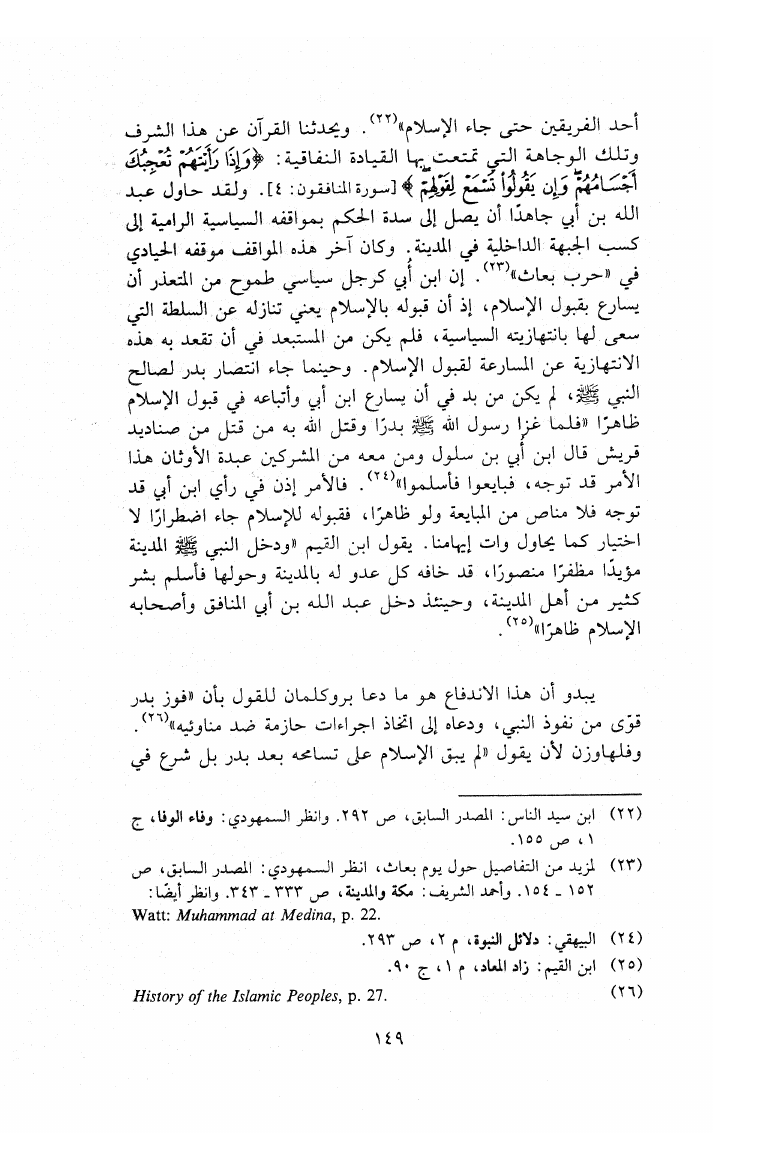 أحد الفريقين حتى جاء الإسلام»(٢٢). ويحدثنا القرآن عن هذا الشرف
وتلك الوجاهة التي تمتعت بها القيادة النفاقية: ﴿وَإِذَا رَأَيْتَهُمْ تُعْجِبُكَ
أَجْسَامُهُمْ وَإِن يَقُولُواْ تَسْمَعْ لِقَوْلِهِمْ﴾ [سورة المنافقون: ٤]. ولقد حاول عبد
الله بن أبي جاهدًا أن يصل إلى سدة الحكم بمواقفه السياسية الرامية إلى
كسب الجبهة الداخلية في المدينة. وكان آخر هذه المواقف موقفه الحيادي
في «حرب بعاث»(٢٣). إن ابن أُبي كرجل سياسي طموح من المتعذر أن
يسارع بقبول الإسلام، إذ أن قبوله بالإسلام يعني تنازله عن السلطة التي
سعى لها بانتهازيته السياسية، فلم يكن من المستبعد في أن تقعد به هذه
الانتهازية عن المسارعة لقبول الإسلام. وحينما جاء انتصار بدر لصالح
النبي ﷺ، لم يكن من بد في أن يسارع ابن أبي وأتباعه في قبول الإسلام
ظاهرًا «فلما غزا رسول الله ﷺ بدرًا وقتل الله به من قتل من صناديد
قريش قال ابن أُبي بن سلول ومن معه من المشركين عبدة الأوثان هذا
الأمر قد توجه، فبايعوا فأسلموا»(٢٤). فالأمر إذن في رأي ابن أبي قد
توجه فلا مناص من المبايعة ولو ظاهرًا، فقبوله للإسلام جاء اضطرارًا لا
اختيار كما يحاول وات إيهامنا. يقول ابن القيم «ودخل النبي ﷺ المدينة
مؤيدًا مظفرًا منصورًا، قد خافه كل عدو له بالمدينة وحولها فأسلم بشر
كثير من أهل المدينة، وحينئذ دخل عبد الله بن أبي المنافق وأصحابه
الإسلام ظاهرًا»(٢٥).
يبدو أن هذا الاندفاع هو ما دعا بروكلمان للقول بأن «فوز بدر
قوّى من نفوذ النبي، ودعاه إلى اتخاذ اجراءات حازمة ضد مناوئيه»(٢٦).
وفلهاوزن لأن يقول «لم يبق الإسلام على تسامحه بعد بدر بل شرع في
(٢٢) ابن سيد الناس: المصدر السابق، ص ٢٩٢. وانظر السمهودي: وفاء الوفا، ج
١، ص ١٥٥.
(٢٣) لمزيد من التفاصيل حول يوم بعاث، انظر السمهودي: المصدر السابق، ص
١٥٢ ـ ١٥٤. وأحمد الشريف: مكة والمدينة، ص ٣٣٣ ـ ٣٤٣. وانظر أيضًا:
Watt: Muhammad at Medina, p. 22.
(٢٤) البيهقي: دلائل النبوة، م ٢، ص ٢٩٣.
(٢٥) ابن القيم: زاد المعاد، م ١، ج ٩٠.
(٢٦) History of the Islamic Peoples, p. 27.
١٤٩